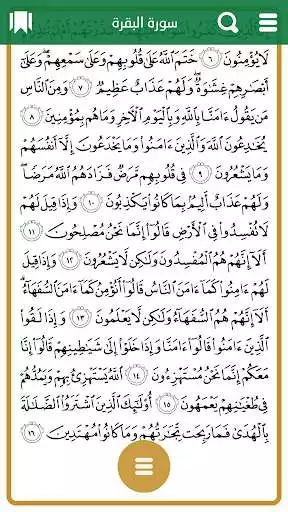 سورة البقرة
لَا يُؤْمِنُونَ ٦ خَتَمَ ٱللَّهُ عَلَىٰ قُلُوبِهِمْ وَعَلَىٰ سَمْعِهِمْ ۖ وَعَلَىٰٓ
أَبْصَٰرِهِمْ غِشَٰوَةٌ ۖ وَلَهُمْ عَذَابٌ عَظِيمٌ ٧ وَمِنَ ٱلنَّاسِ
مَن يَقُولُ ءَامَنَّا بِٱللَّهِ وَبِٱلْيَوْمِ ٱلْءَاخِرِ وَمَا هُم بِمُؤْمِنِينَ ٨
يُخَٰدِعُونَ ٱللَّهَ وَٱلَّذِينَ ءَامَنُوا۟ وَمَا يَخْدَعُونَ إِلَّآ أَنفُسَهُمْ
وَمَا يَشْعُرُونَ ٩ فِى قُلُوبِهِم مَّرَضٌ فَزَادَهُمُ ٱللَّهُ مَرَضًا ۖ
وَلَهُمْ عَذَابٌ أَلِيمٌۢ بِمَا كَانُوا۟ يَكْذِبُونَ ١٠ وَإِذَا قِيلَ لَهُمْ
لَا تُفْسِدُوا۟ فِى ٱلْأَرْضِ قَالُوٓا۟ إِنَّمَا نَحْنُ مُصْلِحُونَ ١١
أَلَآ إِنَّهُمْ هُمُ ٱلْمُفْسِدُونَ وَلَٰكِن لَّا يَشْعُرُونَ ١٢ وَإِذَا قِيلَ
لَهُمْ ءَامِنُوا۟ كَمَآ ءَامَنَ ٱلنَّاسُ قَالُوٓا۟ أَنُؤْمِنُ كَمَآ ءَامَنَ ٱلسُّفَهَآءُ ۗ
أَلَآ إِنَّهُمْ هُمُ ٱلسُّفَهَآءُ وَلَٰكِن لَّا يَعْلَمُونَ ١٣ وَإِذَا لَقُوا۟
ٱلَّذِينَ ءَامَنُوا۟ قَالُوٓا۟ ءَامَنَّا وَإِذَا خَلَوْا۟ إِلَىٰ شَيَٰطِينِهِمْ قَالُوٓا۟ إِنَّا
مَعَكُمْ إِنَّمَا نَحْنُ مُسْتَهْزِءُونَ ١٤ ٱللَّهُ يَسْتَهْزِئُ بِهِمْ وَيَمُدُّهُمْ
فِى طُغْيَٰنِهِمْ يَعْمَهُونَ ١٥ أُو۟لَٰٓئِكَ ٱلَّذِينَ ٱشْتَرَوُا۟ ٱلضَّلَٰلَةَ
بِٱلْهُدَىٰ فَمَا رَبِحَت تِّجَٰرَتُهُمْ وَمَا كَانُوا۟ مُهْتَدِينَ ١٦